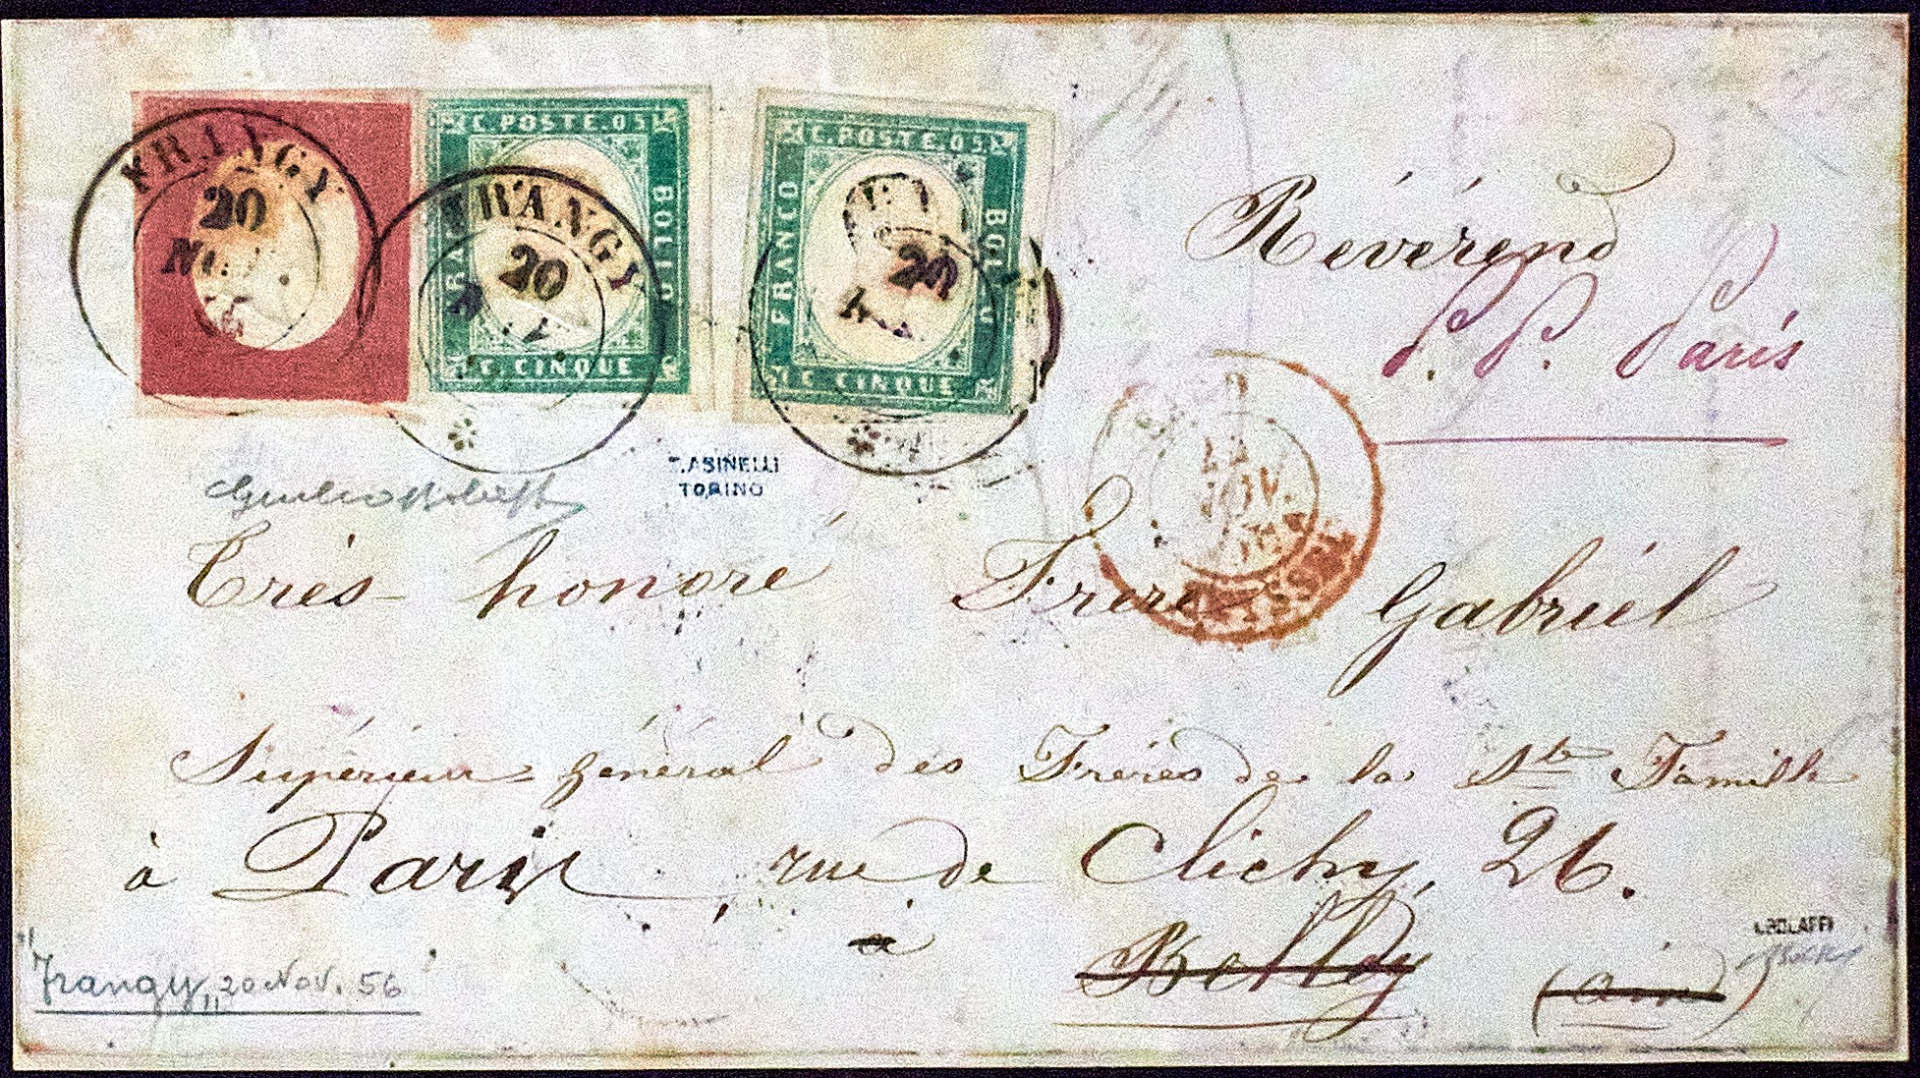 FRANGY
20
C. POSTE. 05
FRANCO
BOLLO
C. CINQUE
FRANGY
20
C. POSTE. 05
FRANCO
BOLLO
C. CINQUE
20
Révérend
P. P. Paris
NOV.
T. ASINELLI
TORINO
Très honoré Frère Gabriel
Supérieur général des Frères de la Ste Famille
à Paris, rue de Clichy, 26.
à Belley (ain)
A. BOLAFFI
"Frangy" 20 Nov. 56